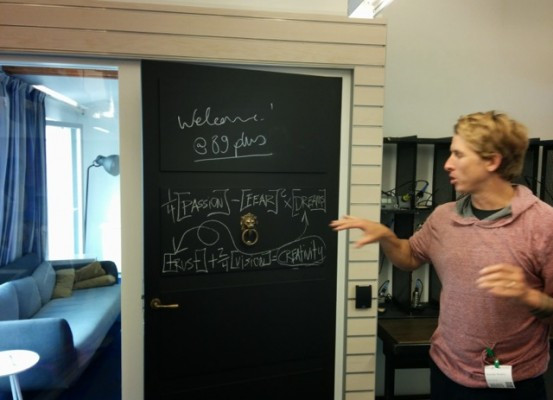 Welcome!
@ 89 plus
[PASSION] - [FEAR]² x [DREAMS]
[TRUST] + ¾ [VISION] = CREATIVITY